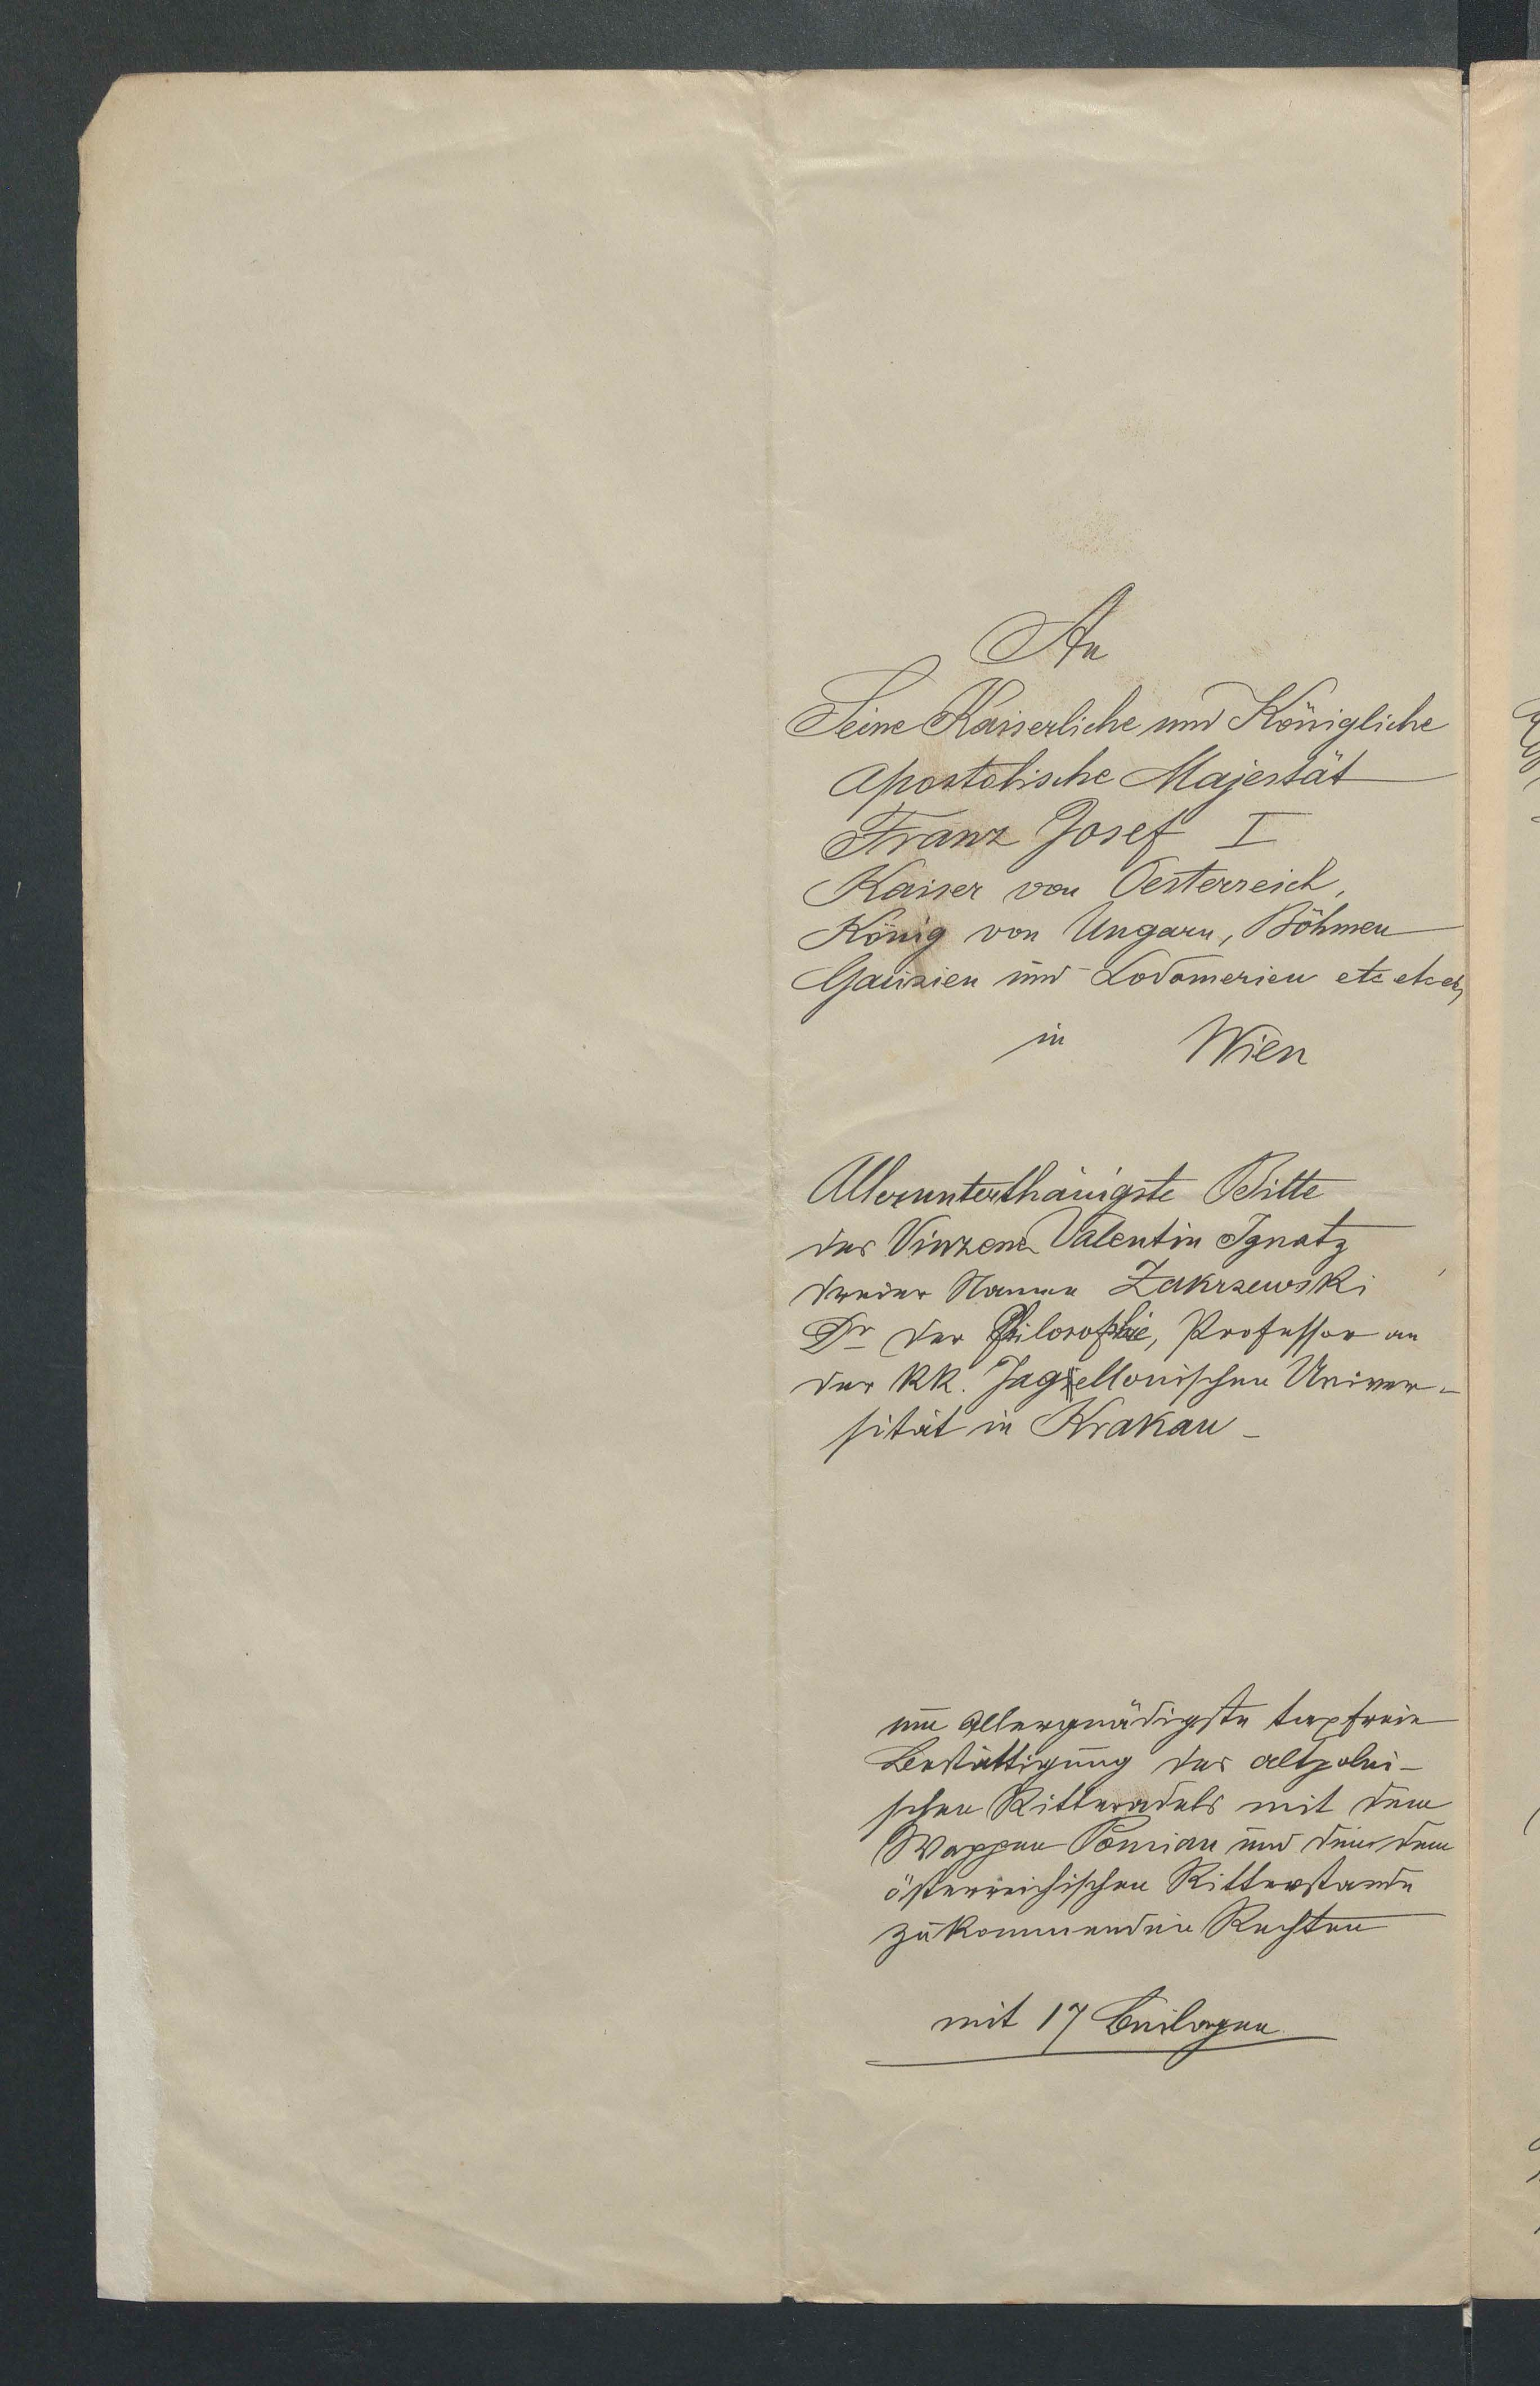 An
Seine Kaiserliche und Königliche
Apostolische Majestät
Franz Josef I
Kaiser von Oesterreich,
König von Ungarn, Böhmen
Galizien und Lodomerien etc etc etc
in Wien
Allerunterthänigste Bitte
des Vinzenz Valentin Ignatz
dreier Namen Zakrzewski
Dr der Philosophie, Professor an
der KK. Jagiellonischen Univer-
sität in Krakau -
um Allergnädigste taxfreie
Bestättigung des altpolni-
schen Ritteradels mit dem
Wappen Pomian und den dem
österreichischen Ritterstande
zukommenden Rechten
mit 17 Beilagen